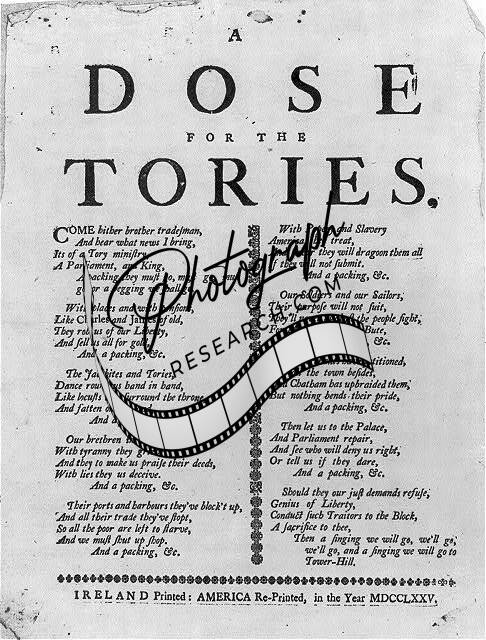 A
DOSE
FOR THE
TORIES.
COME hither brother tradeſman,
And hear what news I bring,
Its of a Tory miniſtry,
A Parliament, and King,
a packing they muſt go, muſt
a begging we ſhall go.
With places and with penſions,
Like Charles and James of old,
They rob us of our Liberty,
And ſell us all for gold.
And a packing, &c.
The Jacobites and Tories,
Dance round us hand in hand,
Like locuſts ſurround the throne
And fatten
And a
Our brethren
With tyranny they
And they to make us praiſe their deeds,
With lies they us deceive.
And a packing, &c.
Their ports and harbours they've block't up,
And all their trade they've ſtopt,
So all the poor are left to ſtarve,
And we muſt ſhut up ſhop.
And a packing, &c.
With and Slavery
America treat,
they will dragoon them all
they will not ſubmit.
And a packing, &c.
Our Soldiers and our Sailors,
Their purpoſe will not ſuit,
They'll the people fight,
For Bute,
&c.
the town beſides,
Chatham has upbraided them,
But nothing bends their pride,
And a packing, &c.
Then let us to the Palace,
And Parliament repair,
And ſee who will deny us right,
Or tell us if they dare,
And a packing, &c.
Should they our juſt demands refuſe,
Genius of Liberty,
Conduct ſuch Traitors to the Block,
A ſacrifice to thee,
Then a ſinging we will go, we'll go,
we'll go, and a ſinging we will go to
Tower-Hill.
IRELAND Printed: AMERICA Re-Printed, in the Year MDCCLXXV.
Photograph
RESEARCH.COM